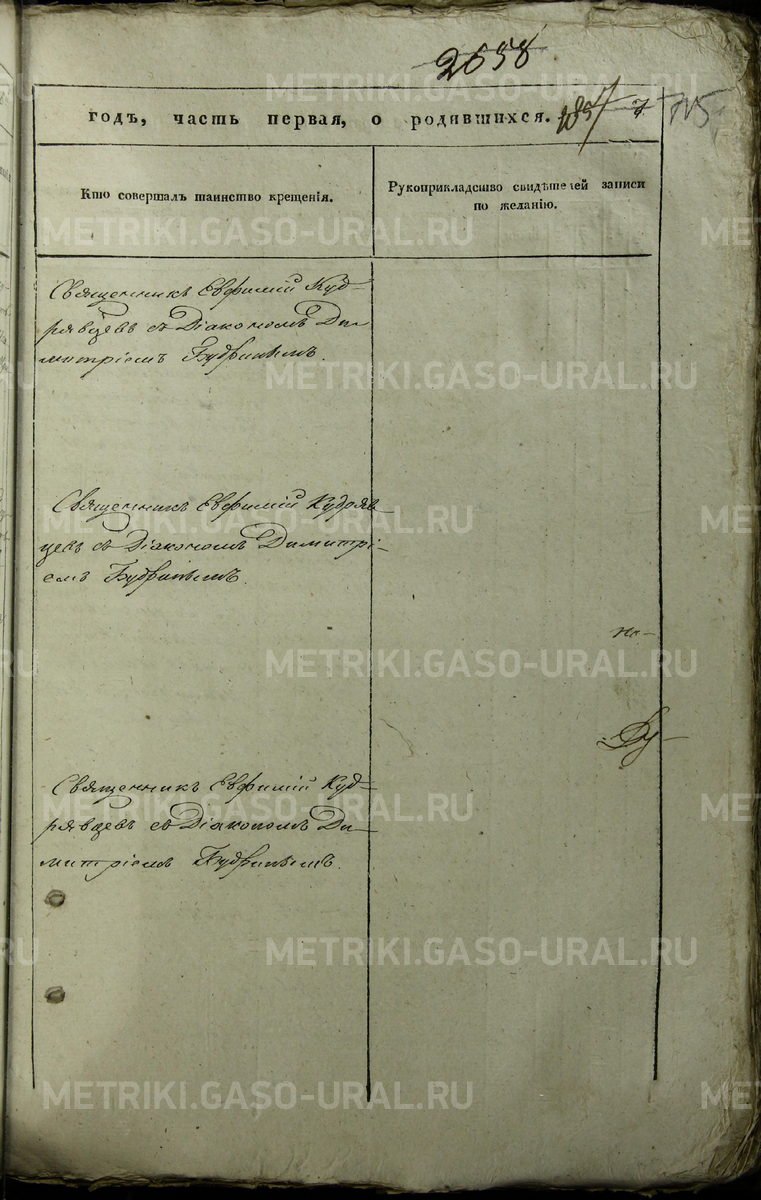 2658
годъ, часть первая, о родившихся.
715
Кто совершалъ таинство крещенія.
Рукоприкладство свидѣтелей записи
по желанію.
Священникъ Евфимій Куд-
рявцевъ съ Діакономъ Ди-
митріемъ
Священникъ Евфимій Кудряв-
цевъ съ Діакономъ Димитрі-
емъ
но-
Ку-
Священникъ Евфимій Куд-
рявцевъ съ Діакономъ Ди-
митріемъ
METRIKI.GASO-URAL.RU